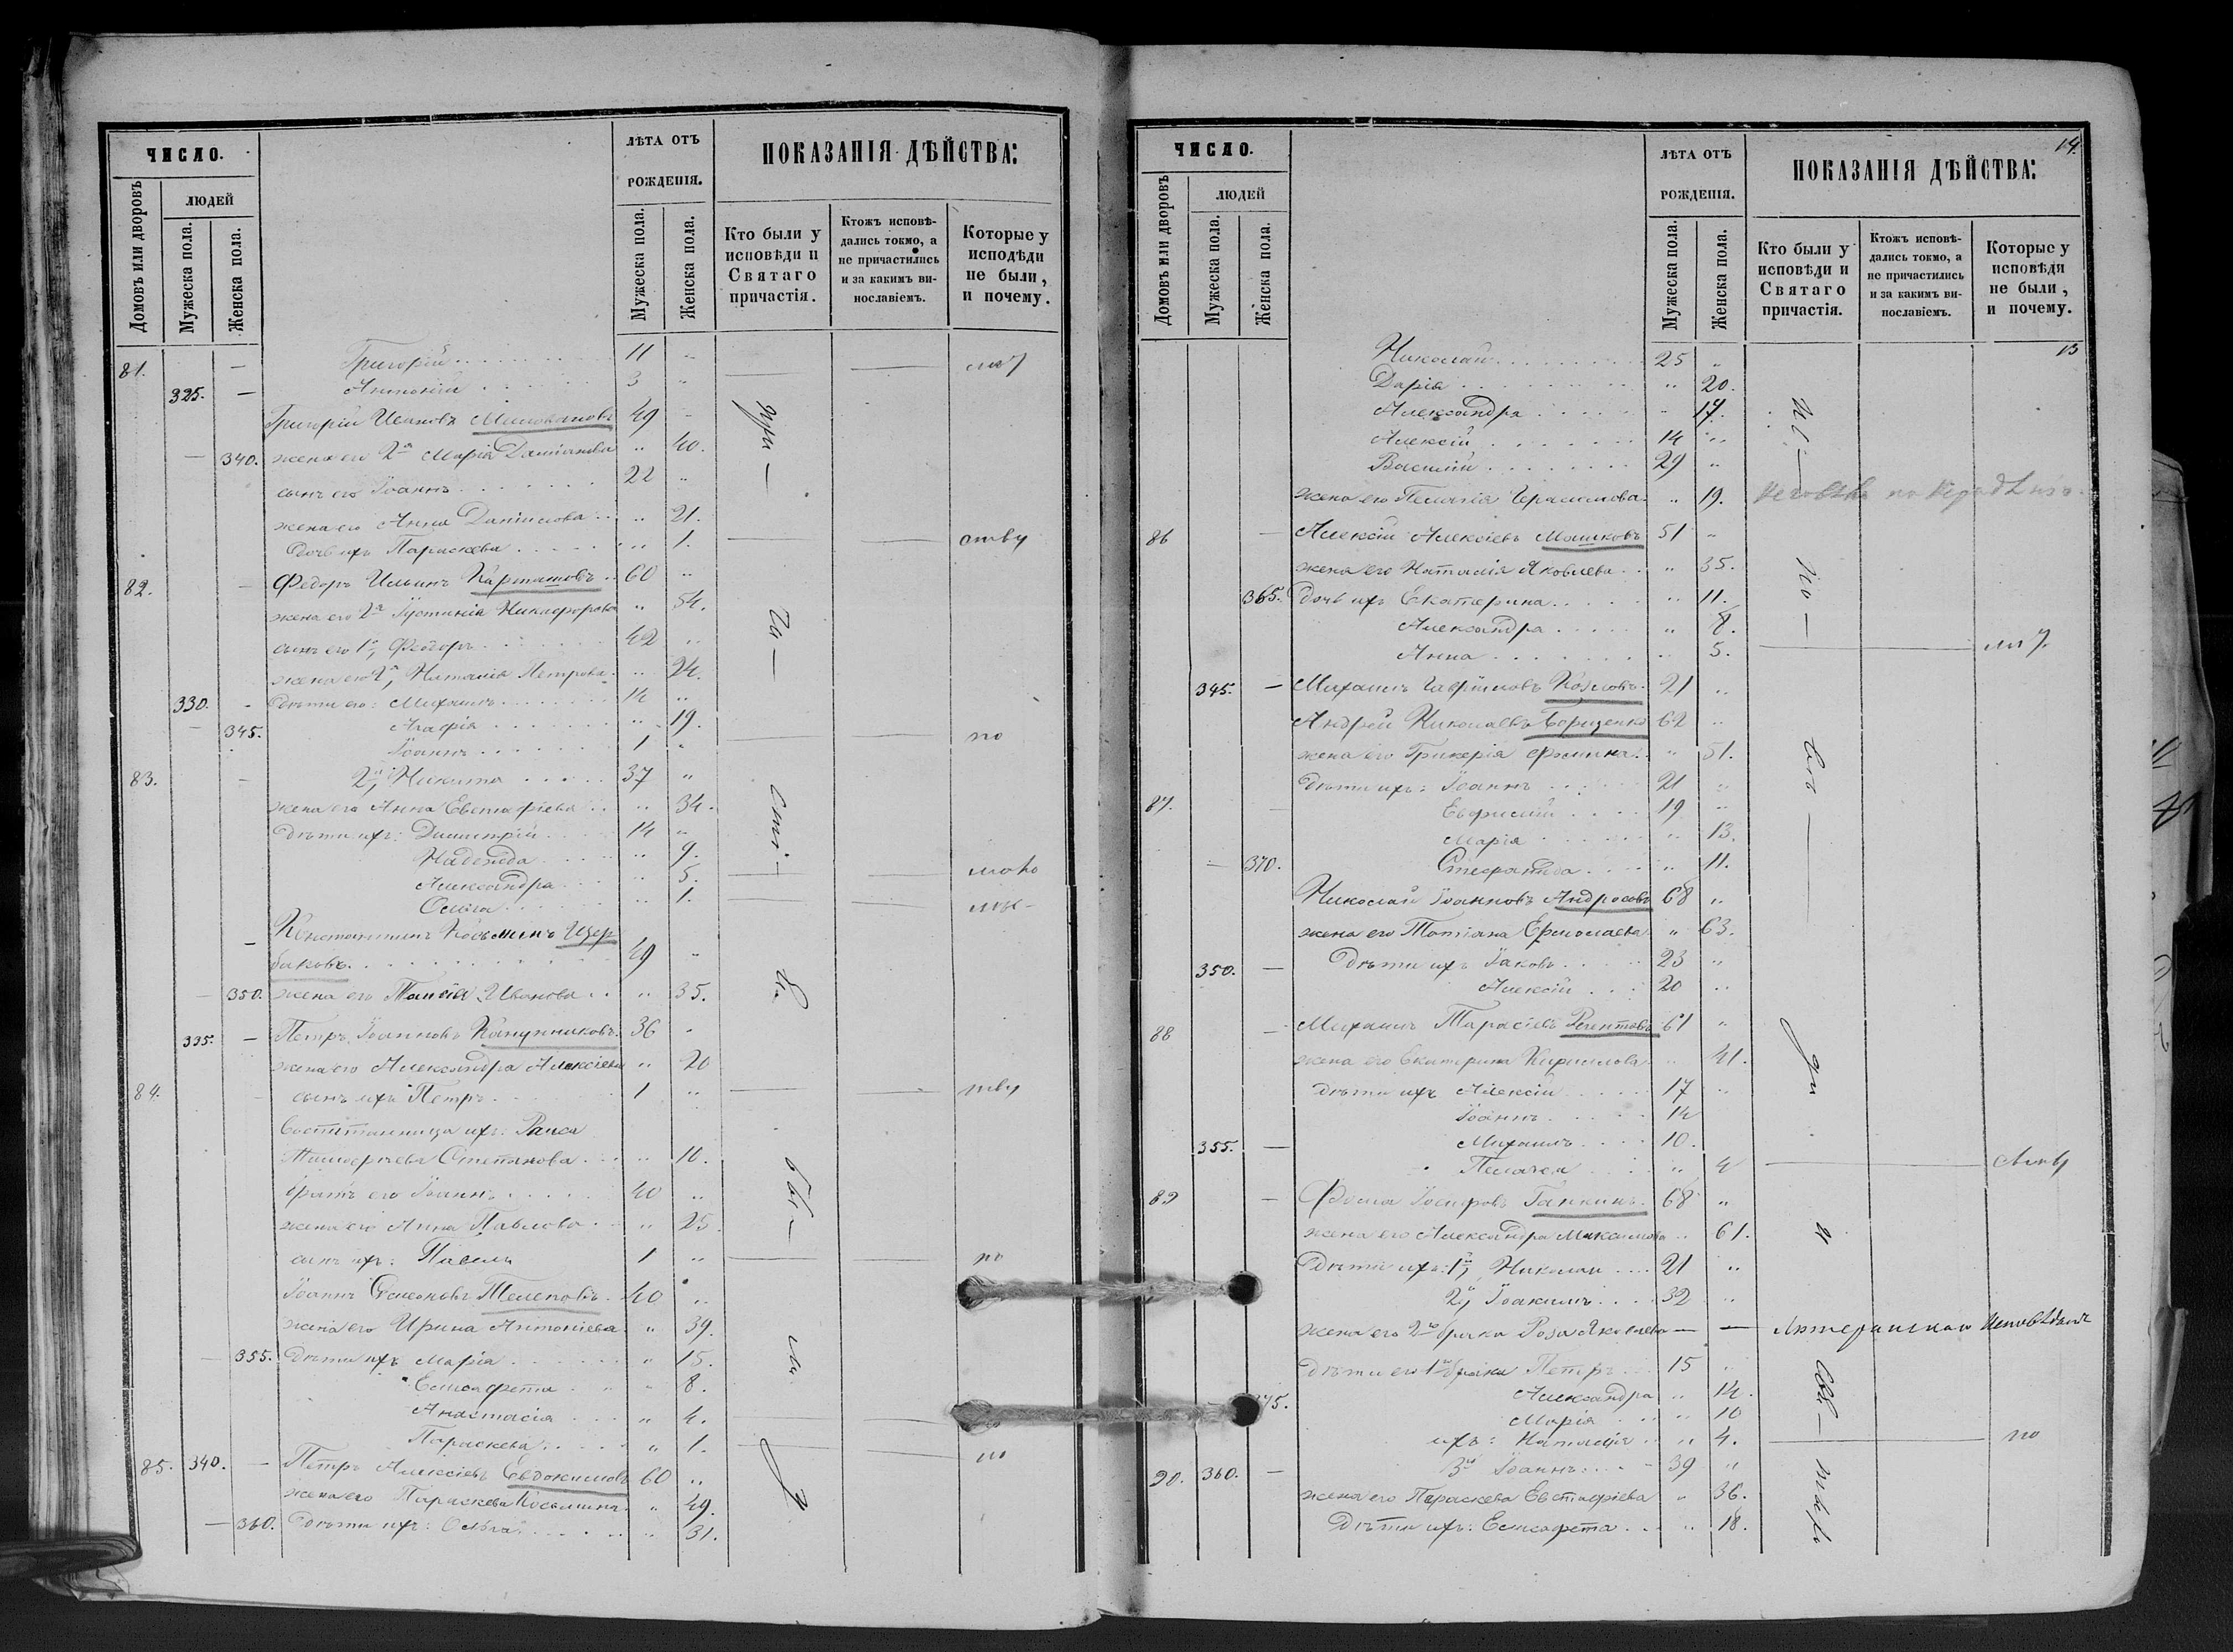 ЧИСЛО.
ЛѢТА ОТЪ РОЖДЕНІЯ.
ПОКАЗАНІЯ ДѢЙСТВА:
Домовъ или дворовъ
ЛЮДЕЙ
Мужеска пола.
Женска пола.
Мужеска пола.
Женска пола.
Кто были у исповѣди и Святаго причастія.
Ктожъ исповѣ-дались токмо, а не причастились и за какимъ ви-нославіемъ.
Которые у исподѣди не были, и почему.
81. — Григорій 11 "
325. — Антоній 3 "
Григорій Ивановъ 49 "
— 340. жена его 2я Марія Даміанова " 40.
сынъ его Іоаннъ 22 "
жена его Анна Даніилова " 21.
дочь ихъ Параскева " 1.
82. — Федоръ Ильинъ Карташовъ 60 "
жена его 2я Іустинія Никифорова " 54.
сынъ его 1й, Феодоръ 42 "
жена его 2я, Наталія Петрова " 24.
330. - дѣти его: Михаилъ 14 "
— 345. Агафія " 19.
Іоаннъ 1 " по
83. — 2й, Никита 37 "
жена его Анна Евстафіева " 34.
дѣти ихъ: Димитрій 14 "
Надежда " 9.
Александра " 5.
Ольга " 1.
— Константинъ Косьминъ Щер
баковъ 49 "
— 350. жена его Таисія Иванова " 35.
335. — Петръ Іоанновъ 36 "
жена его Александра Алексіева " 20
84. сынъ ихъ Петръ 1 "
воспитанница ихъ: Раиса
Тимофеева Степанова " 10.
братъ его Іоаннъ 40 "
жена его Анна Павлова " 25
сынъ ихъ: Павелъ 1 " по
Іоаннъ Симеоновъ 40 "
жена его Ирина Антоніева " 39.
— 355. дѣти ихъ Марія " 15.
Елисавета " 8.
Анастасія " 4.
Параскева " 1.
85. 340. — Петръ Алексіевъ Евдокимовъ 60 "
жена его Параскева Косьмина " 49.
— 360. дѣти ихъ: Ольга " 31.
ЧИСЛО.
ЛѢТА ОТЪ РОЖДЕНІЯ.
ПОКАЗАНІЯ ДѢЙСТВА:
14.
Домовъ или дворовъ
ЛЮДЕЙ
Мужеска пола.
Женска пола.
Мужеска пола.
Женска пола.
Кто были у исповѣди и Святаго причастія.
Ктожъ исповѣ-дались токмо, а не причастились и за какимъ ви-нославіемъ.
Которые у исповѣди не были, и почему.
13
Николай 25 "
Дарія " 20.
Александра " 17.
Алексій 14 "
Василій 29 "
жена его Пелагія Герасимова " 19.
86 — Алексій Алексіевъ Машковъ 51 "
жена его Наталія Яковлева " 35.
365. дочь ихъ Екатерина " 11.
Александра " 8.
Анна " 5.
345. — Михаилъ Гавріиловъ Козловъ 21 "
Андрей Николаевъ Борщенко 62 "
жена его Гликерія Фомина " 51.
дѣти ихъ: Іоаннъ 21 "
87. — 19 "
Марія " 13.
— 370. " 11.
Николай Іоанновъ Андросовъ 68 "
жена его Татіана Ермолаева " 63.
350. — дѣти ихъ Іаковъ 23 "
Алексій 20 "
88 — Михаилъ Тарасіевъ 61 "
жена его Екатерина Кириллова " 41.
дѣти ихъ Алексій 17 "
Іоаннъ 14
355. — Михаилъ 10.
Пелагея " 4
89 — Фома Іосифовъ Галкинъ 68 "
жена его Александра Максимова " 61.
дѣти ихъ: 1й, Николай 21 "
2й, Іоакимъ 32 "
жена его 2го брака Роза Яковлева — — Лютеранскаго исповѣданія
дѣти его 1го брака Петръ 15 "
375. Александра " 14.
Марія " 10
ихъ: Наталія " 4. по
90. 360. — 3й Іоаннъ 39 "
жена его Параскева Евстафіева " 36.
дѣти ихъ: Елисавета " 18.